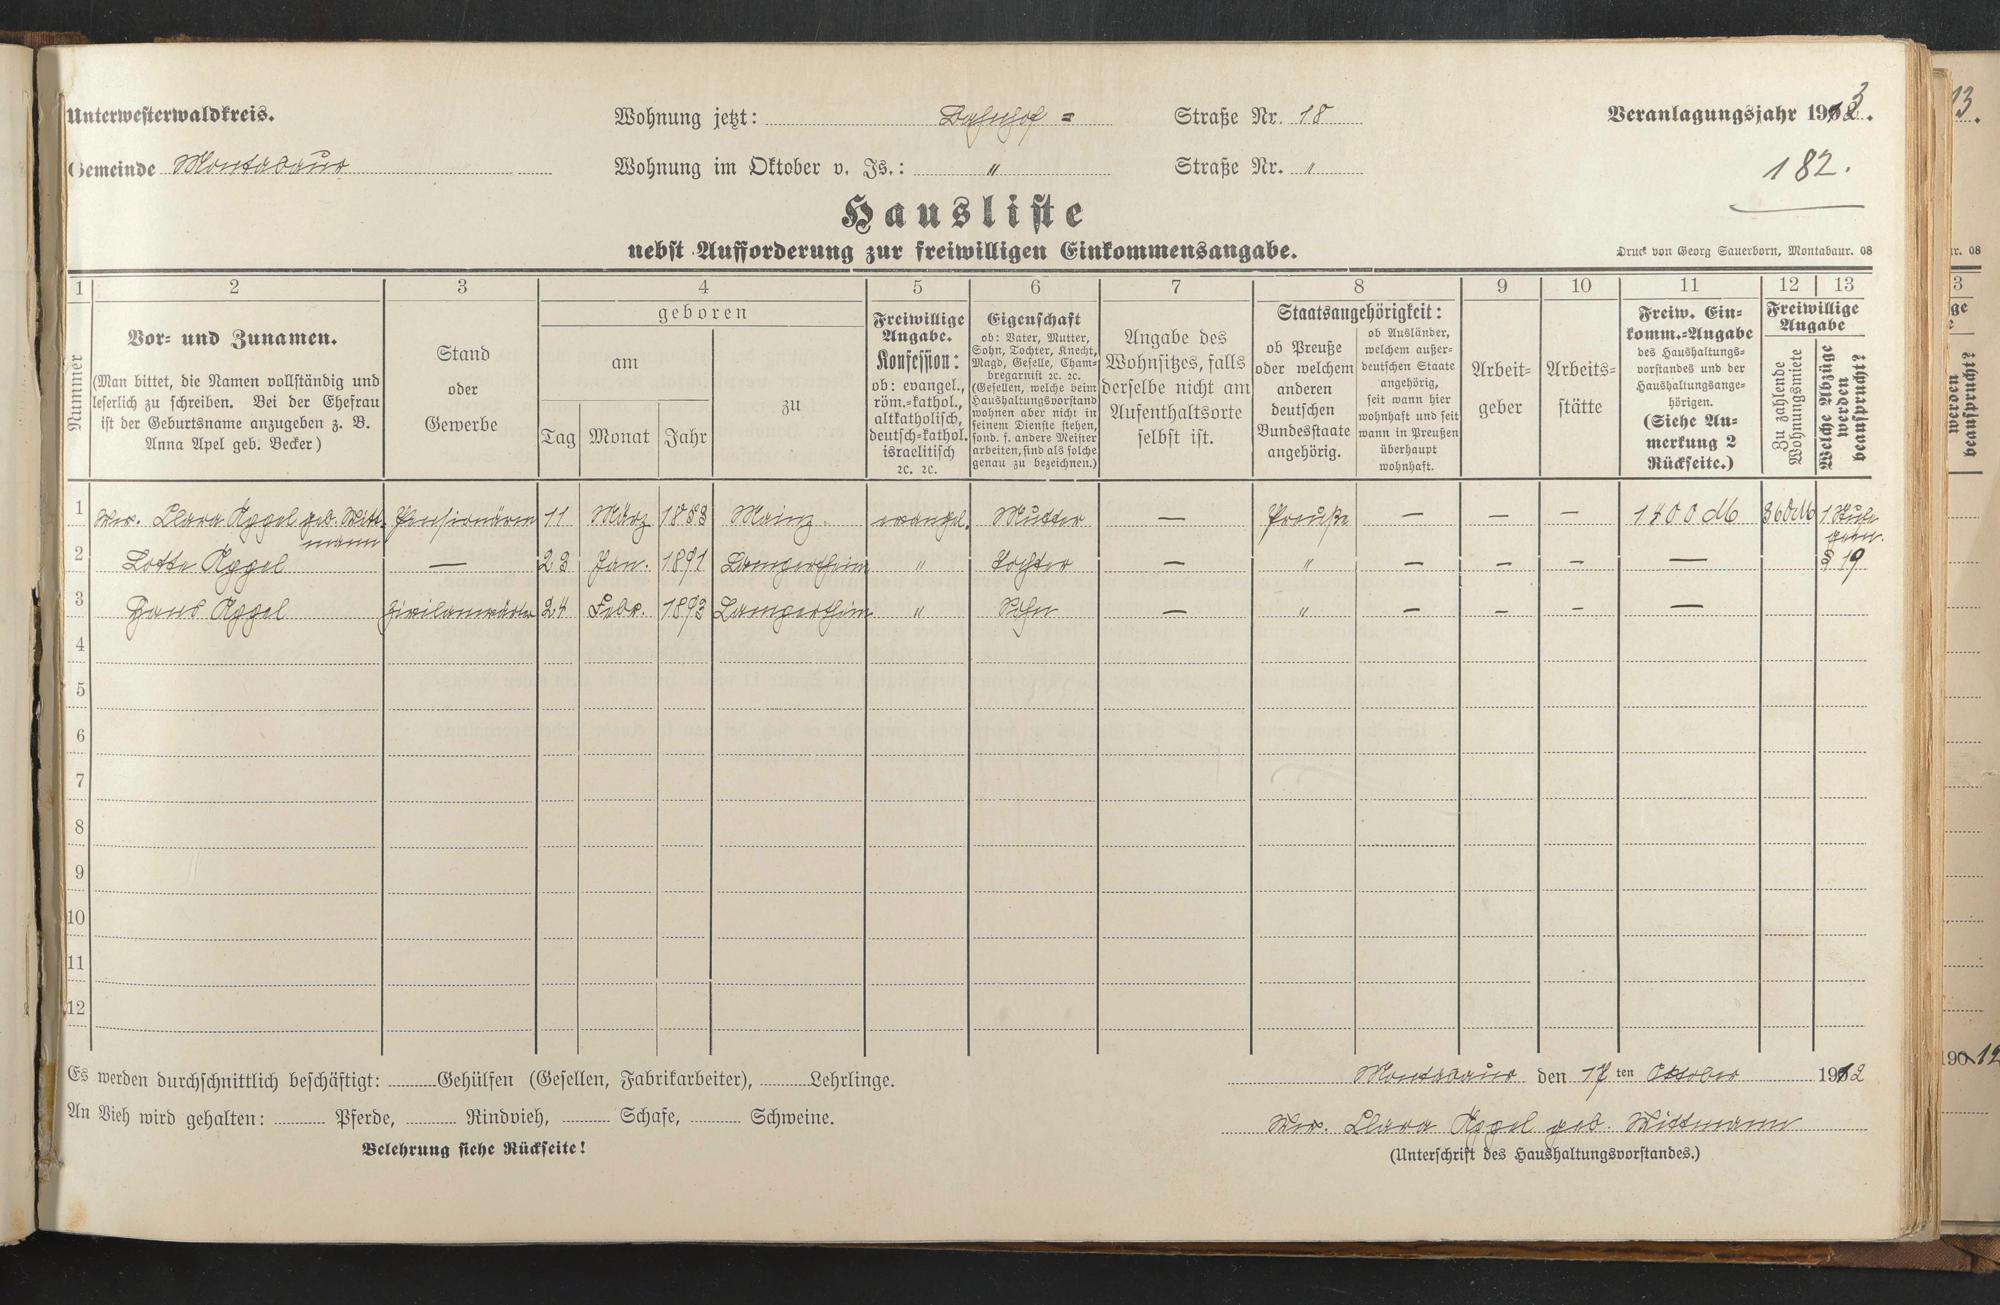 Unterwesterwaldkreis.
Wohnung jetzt: Bahnhof = Straße Nr. 18
Veranlagungsjahr 1913.
Gemeinde Montabaur
Wohnung im Oktober v. Js.: " Straße Nr. "
182.
Hausliste
nebst Aufforderung zur freiwilligen Einkommensangabe.
Druck von Georg Sauerborn, Montabaur. 08
1 2 3 4 5 6 7 8 9 10 11 12 13
Nummer
Vor- und Zunamen.
(Man bittet, die Namen vollständig und
leserlich zu schreiben. Bei der Ehefrau
ist der Geburtsname anzugeben z. B.
Anna Apel geb. Becker)
Stand
oder
Gewerbe
geboren
am
Tag Monat Jahr
zu
Freiwillige
Angabe.
Konfession:
ob: evangel.,
röm.-kathol.,
altkatholisch,
deutsch-kathol.
israelitisch
2c. 2c.
Eigenschaft
ob: Vater, Mutter,
Sohn, Tochter, Knecht,
Magd, Geselle, Cham-
bregarnist 2c. 2c.
(Gesellen, welche beim
Haushaltungsvorstand
wohnen aber nicht in
seinem Dienste stehen,
sond. f. andere Meister
arbeiten, sind als solche
genau zu bezeichnen.)
Angabe des
Wohnsitzes, falls
derselbe nicht am
Aufenthaltsorte
selbst ist.
Staatsangehörigkeit:
ob Preuße
oder welchem
anderen
deutschen
Bundesstaate
angehörig.
ob Ausländer,
welchem außer-
deutschen Staate
angehörig,
seit wann hier
wohnhaft und seit
wann in Preußen
überhaupt
wohnhaft.
Arbeit-
geber
Arbeits-
stätte
Freiw. Ein-
komm.-Angabe
des Haushaltungs-
vorstandes und der
Haushaltungsange-
hörigen.
(Siehe An-
merkung 2
Rückseite.)
Freiwillige
Angabe
Zu zahlende
Wohnungsmiete
Welche Abzüge
werden
beansprucht?
1 Ww. Clara Appel geb. Witt- Pensionärin 11 März 1853 Mainz. evangel. Mutter — Preuße — — — 1400 M 360M 1 Stube
mann
2 Lotte Appel — 23 Jan. 1891 Lampertheim " Tochter — " — — — — § 19
3 Hans Appel Zivilanwärter 24 Febr. 1893 Lampertheim " Sohn — " — — — —
4
5
6
7
8
9
10
11
12
Es werden durchschnittlich beschäftigt: Gehülfen (Gesellen, Fabrikarbeiter), Lehrlinge.
Montabaur den 17ten Oktober 1912
An Vieh wird gehalten: Pferde, Rindvieh, Schafe, Schweine.
Ww. Clara Appel geb. Wittmann
Belehrung siehe Rückseite!
(Unterschrift des Haushaltungsvorstandes.)